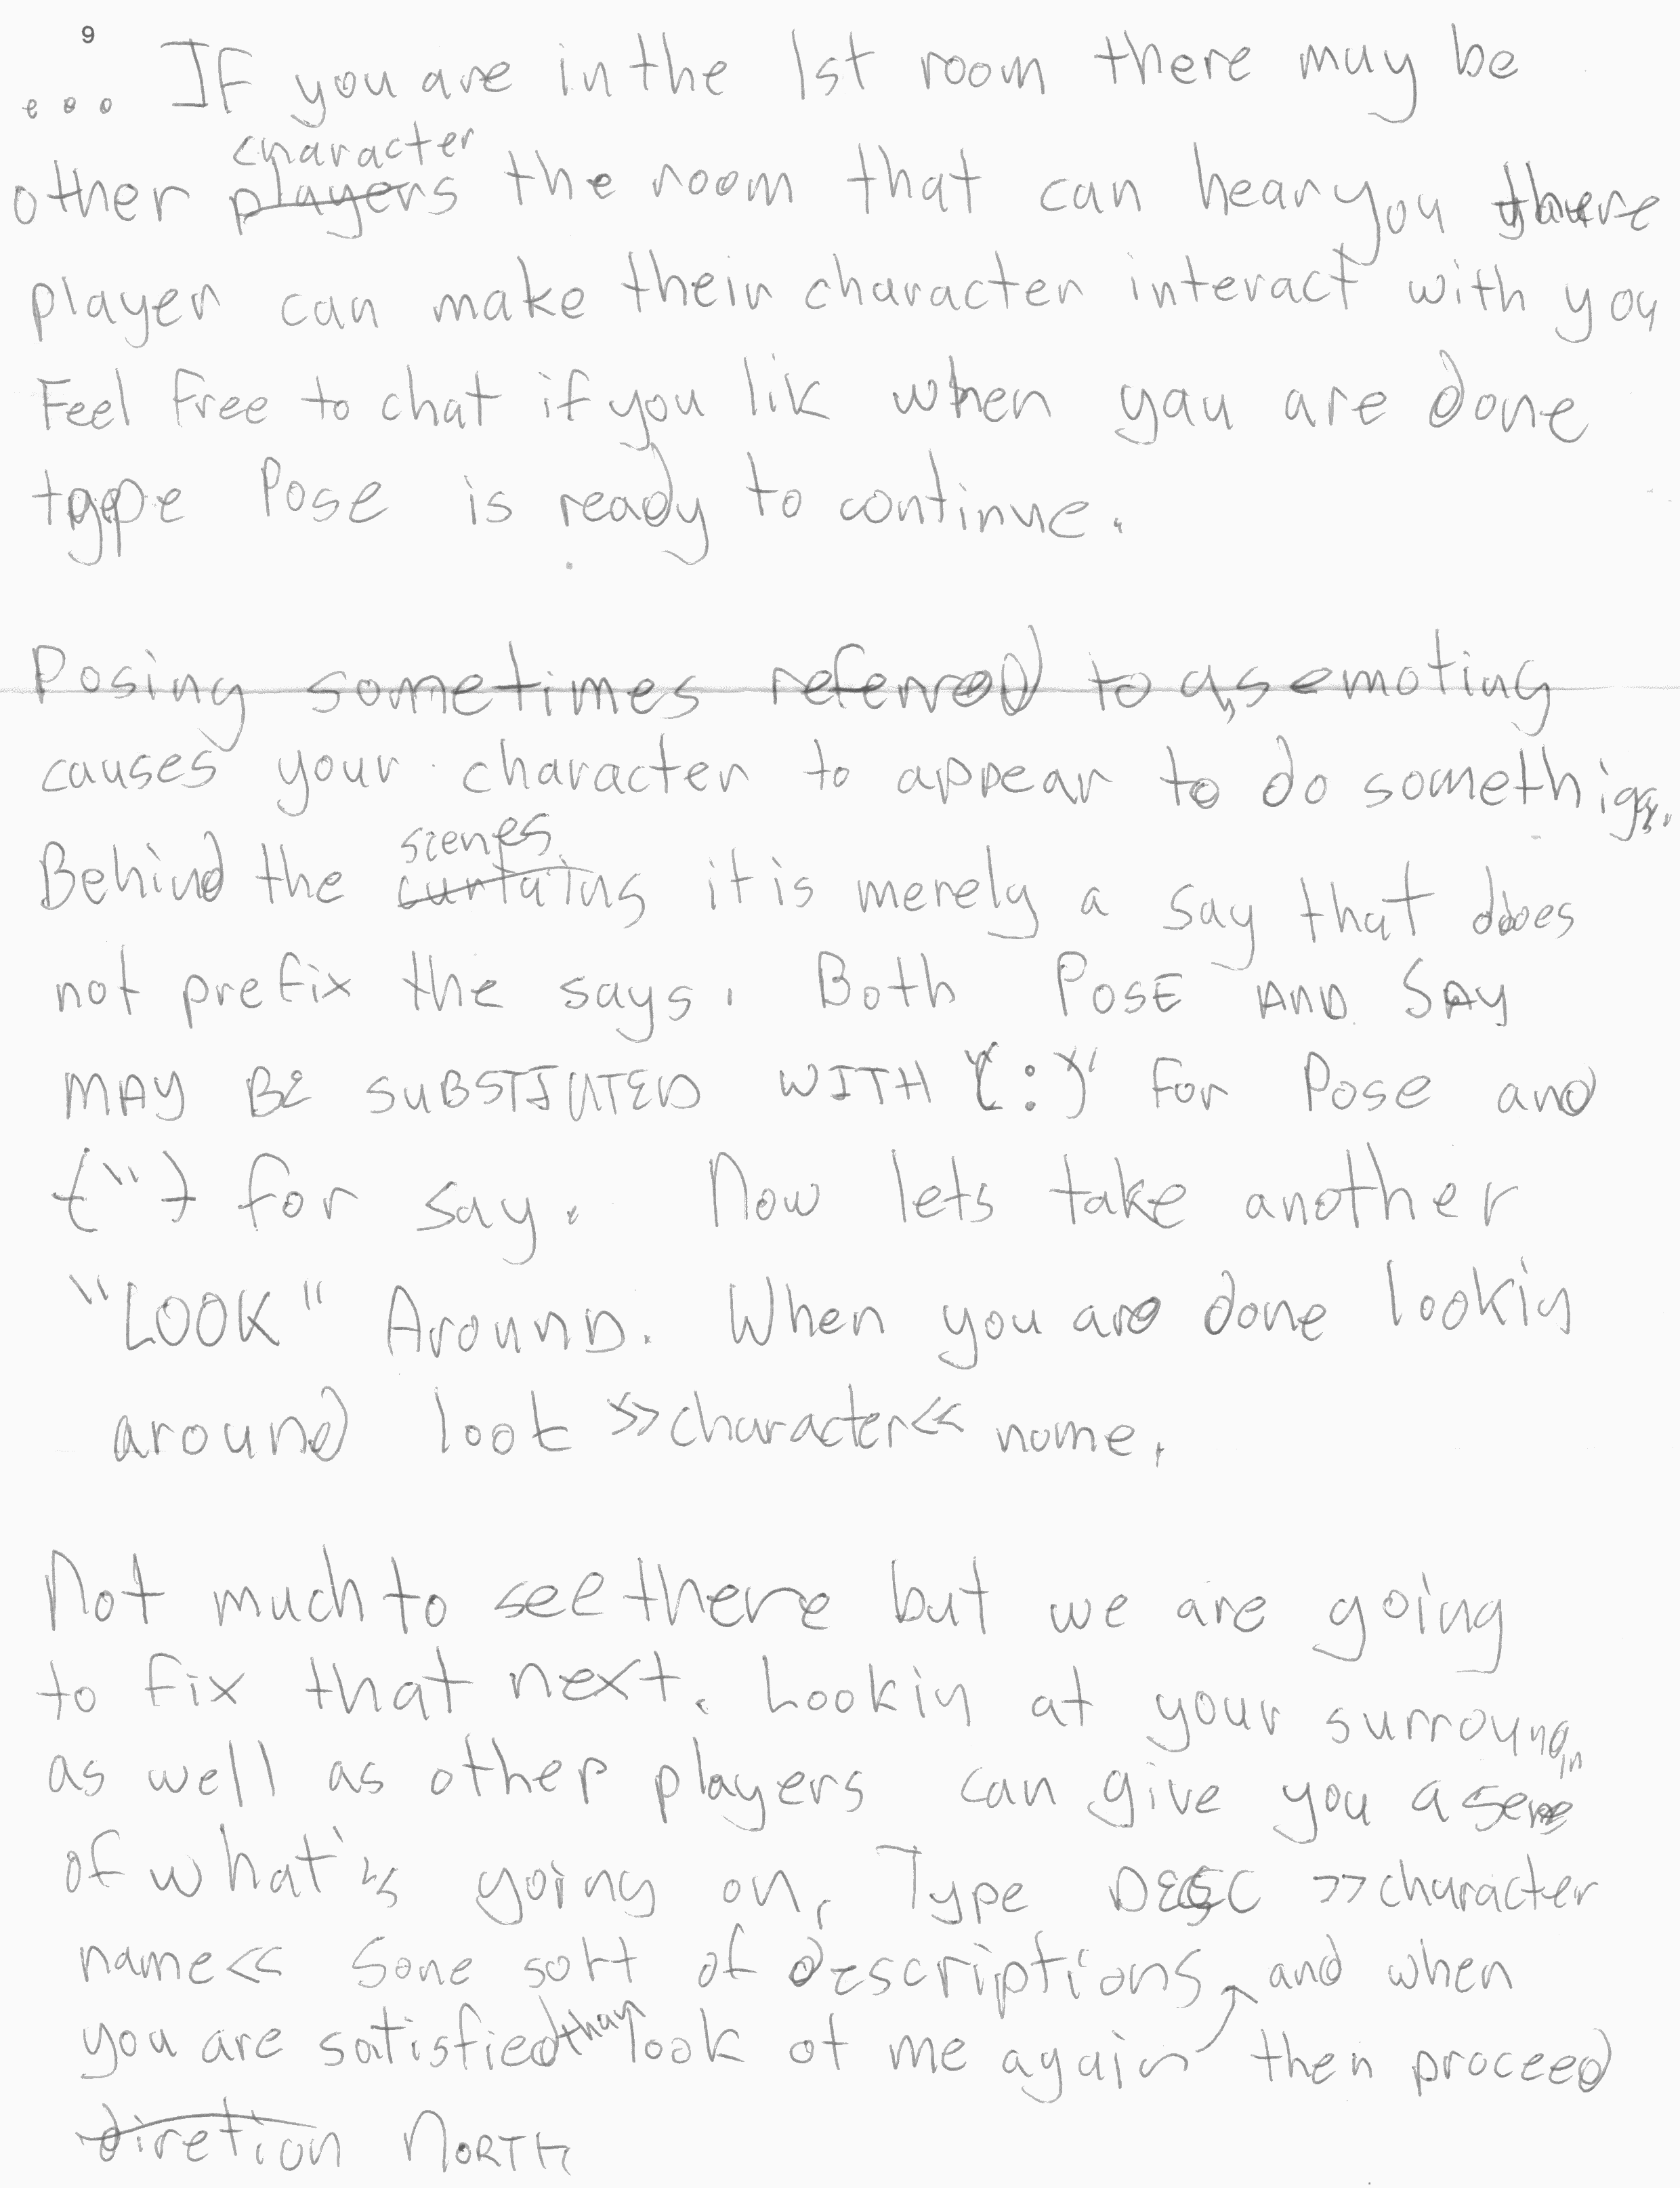 9
... If you are in the 1st room there may be
character
other players the room that can hear you there
player can make their character interact with you
Feel free to chat if you lik when yau are done
type Pose is ready to continue.
Posing sometimes referred to as emoting
causes your character to appear to do somethig.
scenes
Behind the curtains it is merely a say that does
not prefix the says. Both POSE AND SAY
MAY BE SUBSTITUTED WITH {:} for Pose and
{"} for say. Now lets take another
"LOOK" AROUND. When you are done lookin
around look >>character<< name.
Not much to see there but we are going
to fix that next. Lookin at your surroundin
as well as other players can give you a sense
of what's going on. Type DESC >>character
name<< Some sort of descriptions, and when
you are satisfied than look at me again then proceed
diretion NORTH